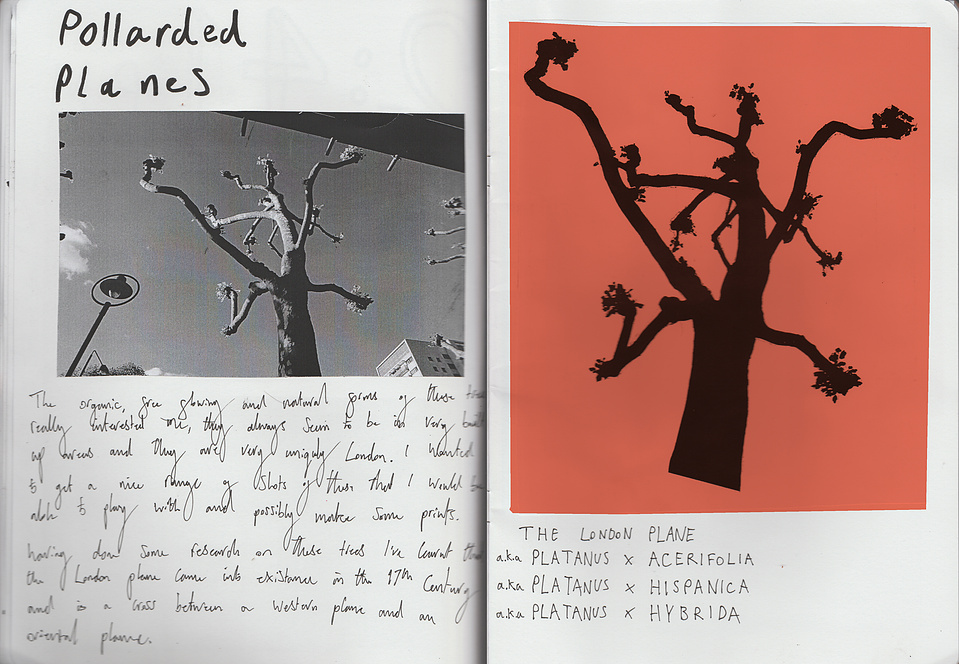 Pollarded
Planes
The organic, free flowing and natural forms of these trees
really interested me, they always seem to be in very built
up areas and they are very uniquly London. I wanted
to get a nice range of shots of these that I would be
able to play with and possibly make some prints.
having done some research on these trees I've learnt that
the London plane came into existance in the 17th Century
and is a cross between a western plane and an
oriental plane.
THE LONDON PLANE
a.k.a PLATANUS x ACERIFOLIA
a.k.a PLATANUS x HISPANICA
a.k.a PLATANUS x HYBRIDA